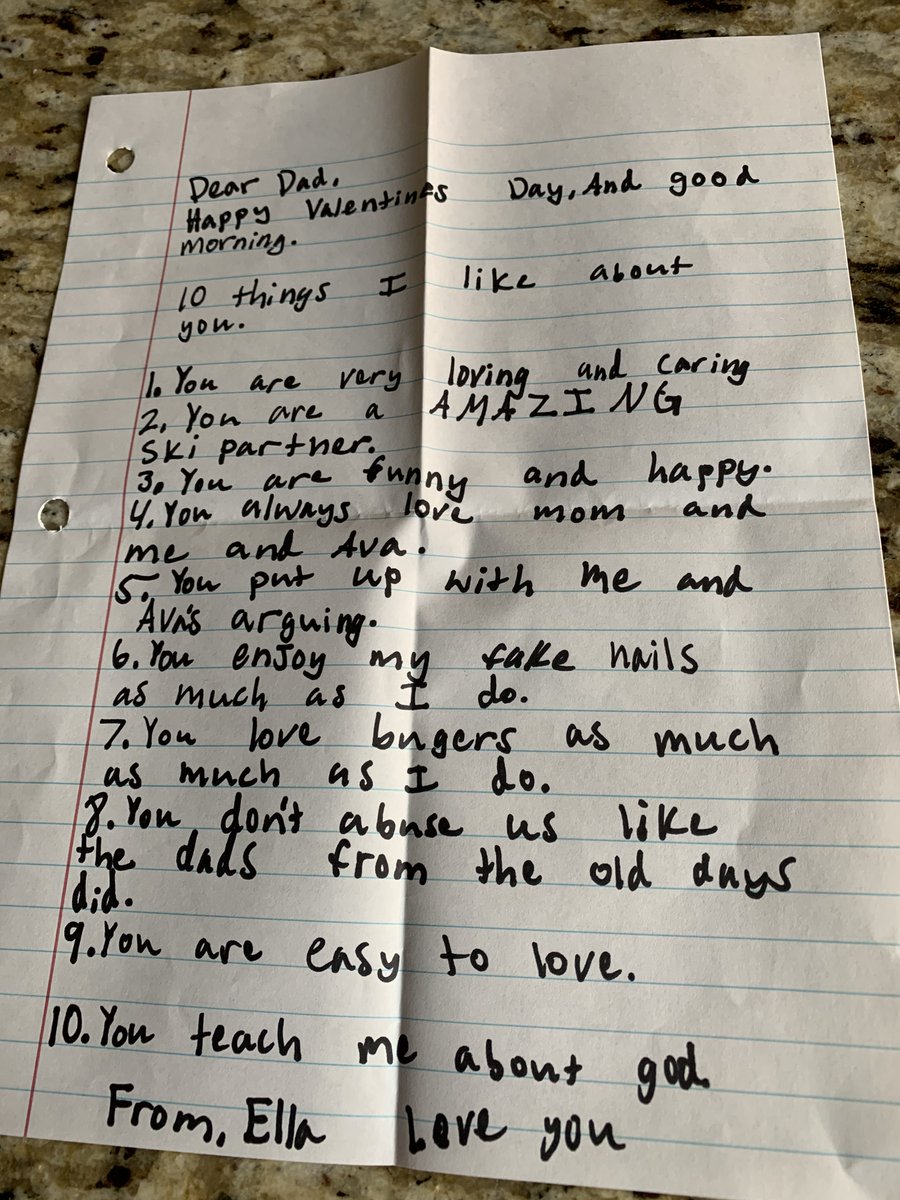 Dear Dad.
Happy Valentines Day, And good
morning.
10 things I like about
you.
1. You are very loving and caring
2. You are a AMAZING
ski partner.
3. You are funny and happy.
4. You always love mom and
me and Ava.
5. You put up with me and
Ava's arguing.
6. You enjoy my fake nails
as much as I do.
7. You love bugers as much
as much as I do.
8. You don't abuse us like
the dads from the old days
did.
9. You are easy to love.
10. You teach me about god.
From, Ella Love you